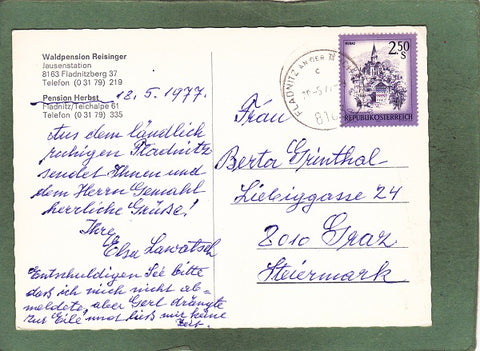 Waldpension Reisinger
Jausenstation
8163 Fladnitzberg 37
Telefon (0 31 79) 219
Pension Herbst 12.5.1977.
Fladnitz/Teichalpe 61
Telefon (0 31 79) 335
Aus dem ländlich
ruhigen Fladnitz
sendet Ihnen und
dem Herrn Gemahl
herrliche Grüße!
Ihre
Elsa Lawatsch
Entschuldigen Sie bitte
daß ich mich nicht ab=
meldete, aber Gert drängte
zur Eile und ließ mir keine
Zeit.
FLADNITZ AN DER
2.50
S
REPUBLIK ÖSTERREICH
Frau
Berta Grünthal
Liebiggasse 24
8010 Graz
Steiermark